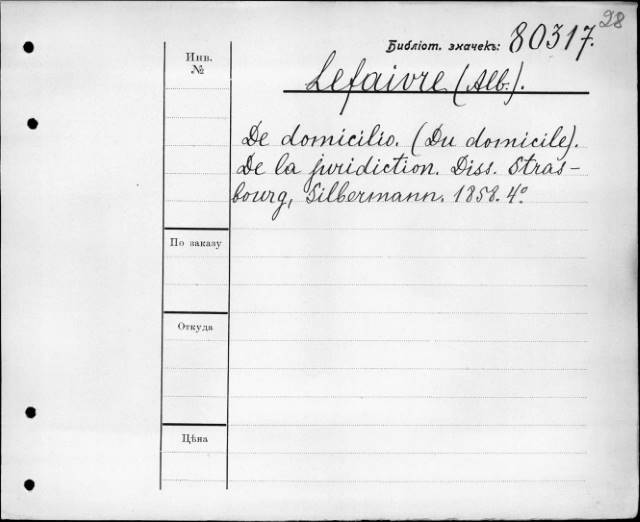 28
Библіот. значекъ: 80317.
Инв.
№
Lefaivre (Alb.).
De domicilio. (Du domicile).
De la juridiction. Diss. Stras-
bourg, Silbermann. 1858. 4°
По заказу
Откуда
Цѣна